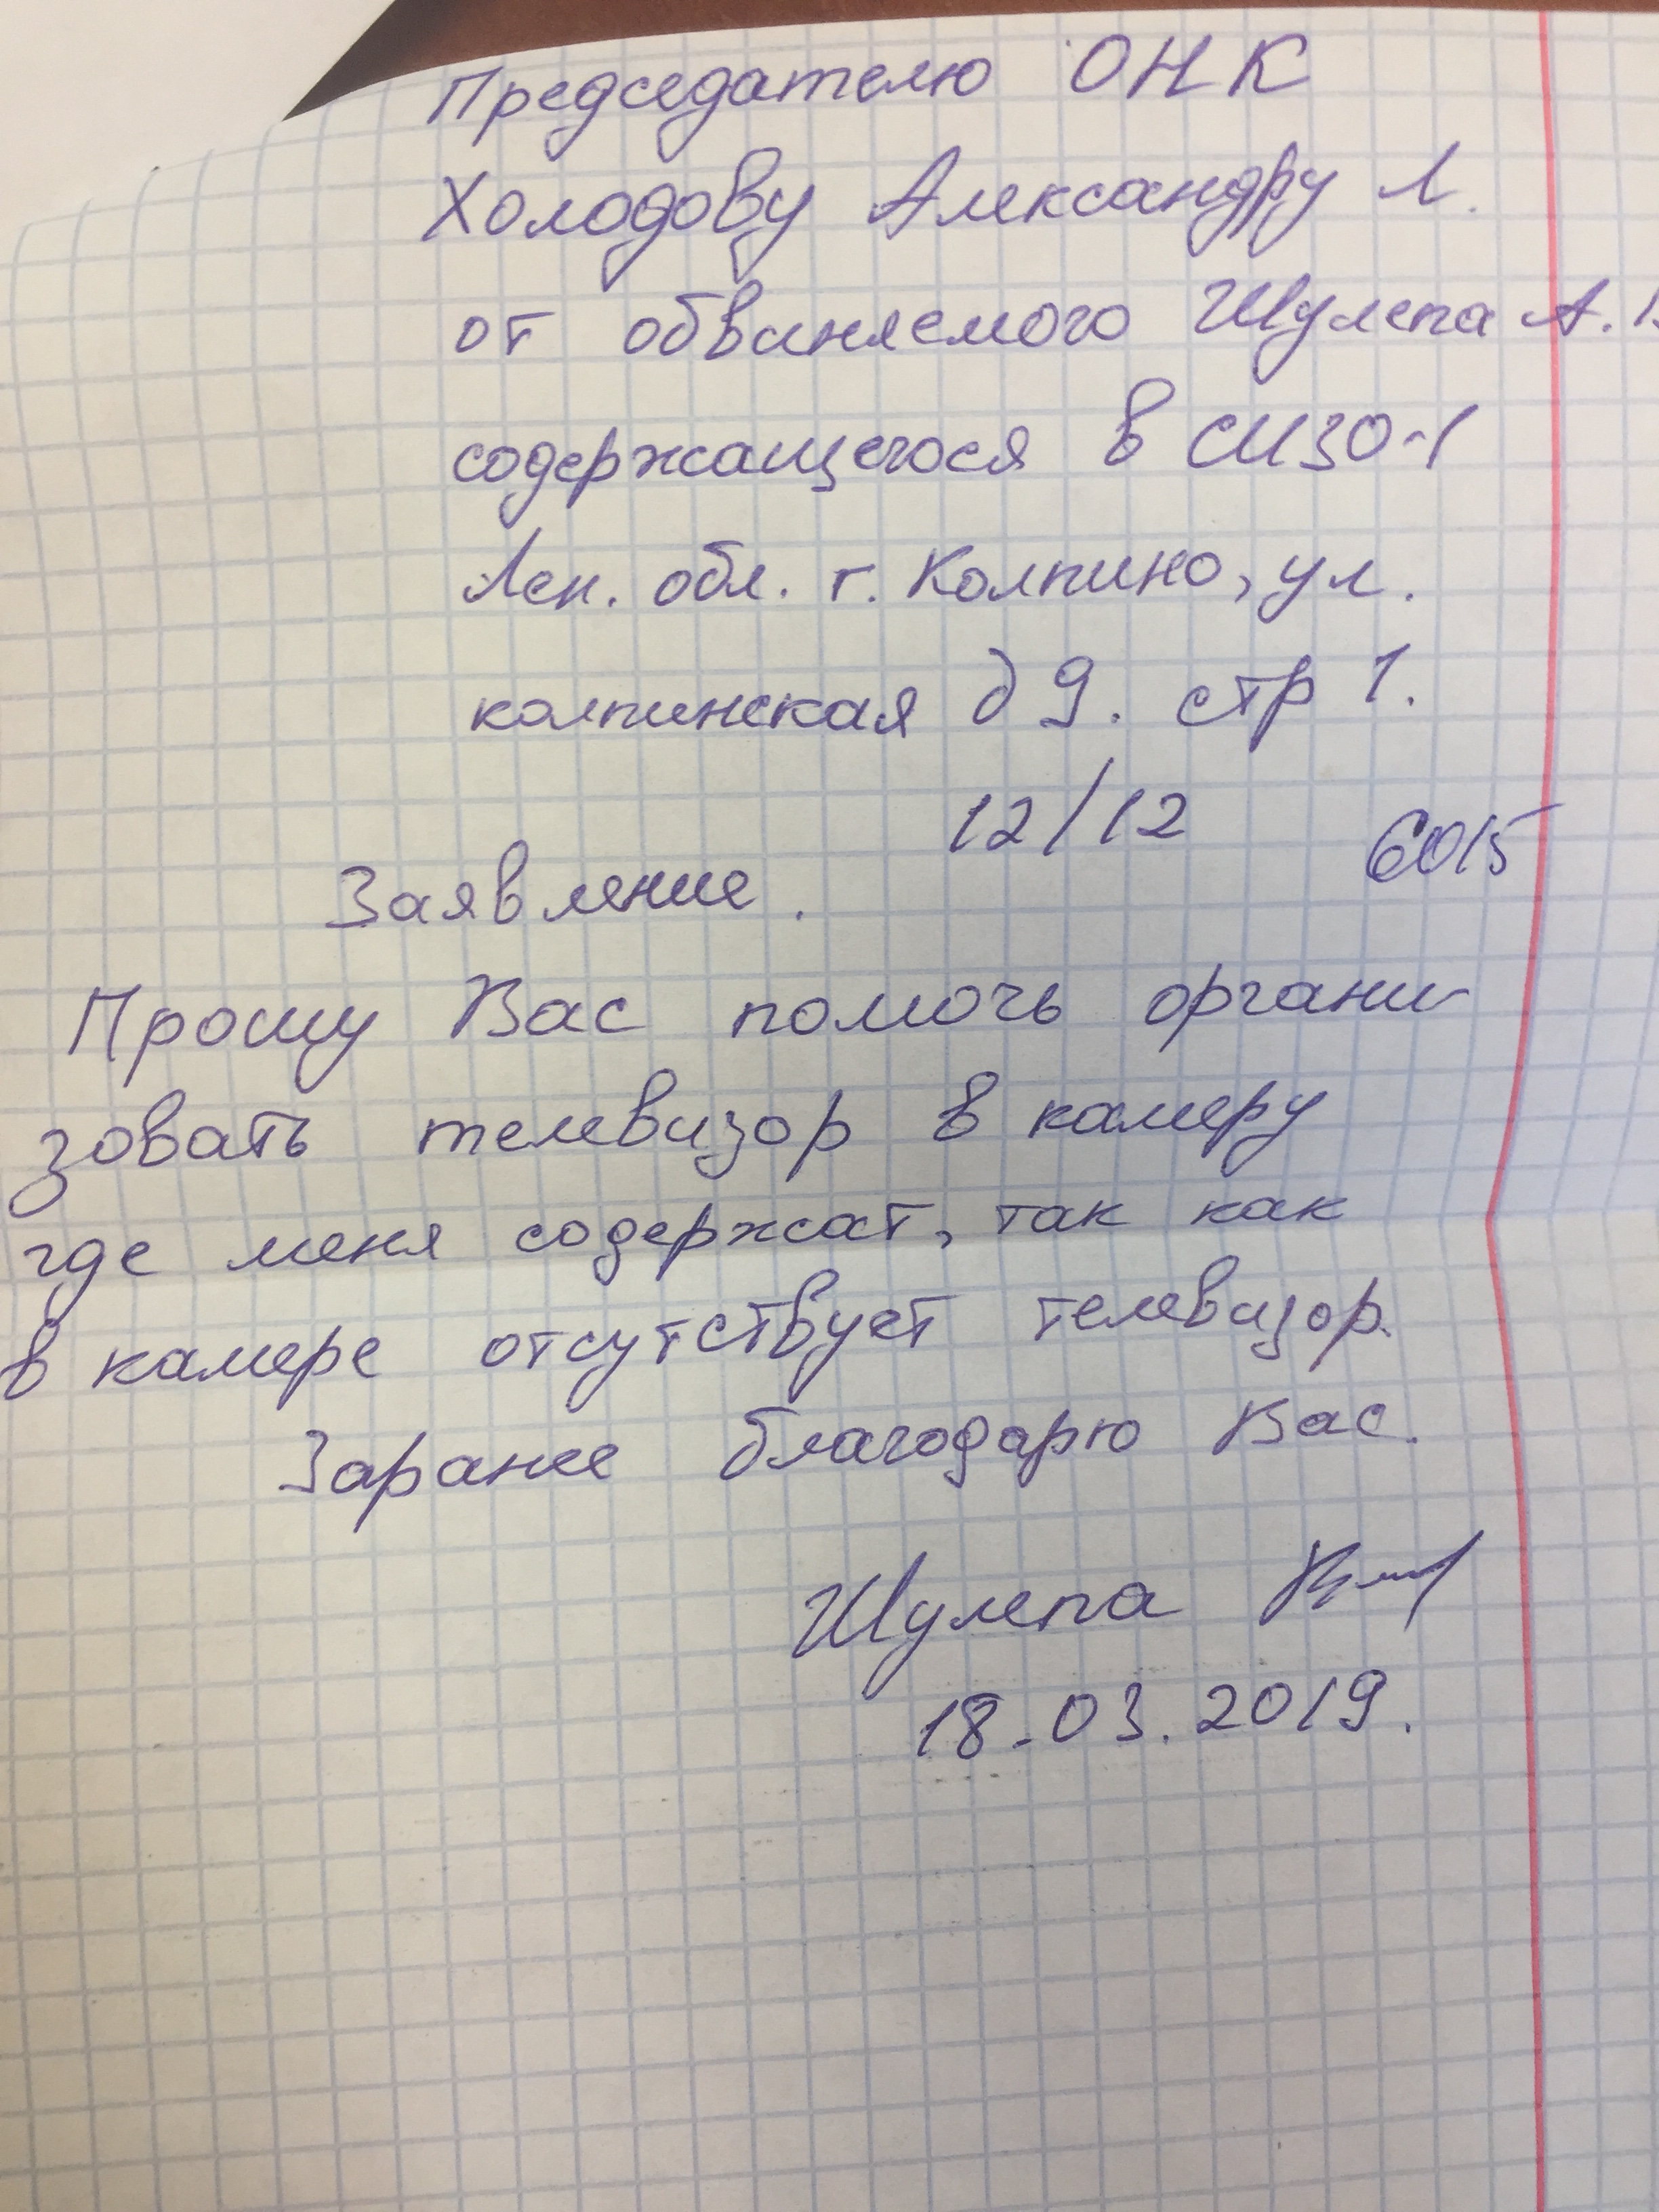 Председателю ОНК
Холодову Александру Л.
от обвиняемого Шулепа А.
содержащегося в СИЗО-1
Лен. обл. г. Колпино, ул.
колпинская д 9. стр 1.
12/12 6015
Заявление.
Прошу Вас помочь органи-
зовать телевизор в камеру
где меня содержат, так как
в камере отсутствует телевизор.
Заранее благодарю Вас.
Шулепа
18.03.2019.